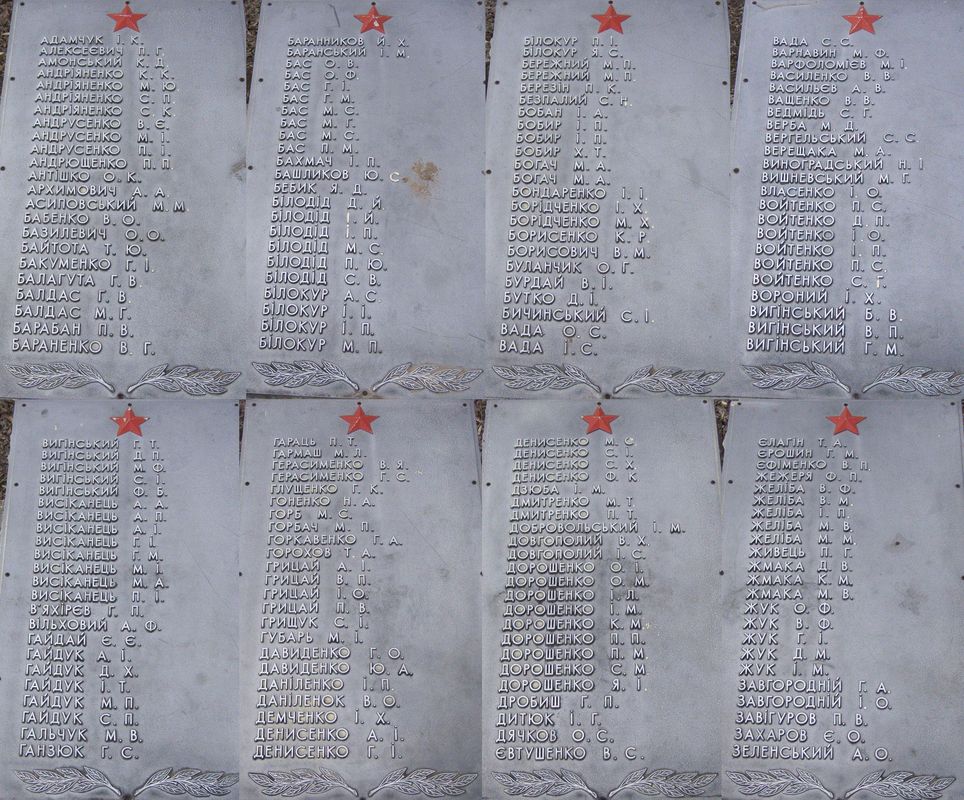 АДАМЧУК І. К.
АЛЕКСЕЄВИЧ П. Г.
АМОНСЬКИЙ К. Д.
АНДРІЯНЕНКО К. К.
АНДРІЯНЕНКО М. Ю.
АНДРІЯНЕНКО С. П.
АНДРІЯНЕНКО С. К.
АНДРУСЕНКО В. Є.
АНДРУСЕНКО М. І.
АНДРУСЕНКО П. П.
АНДРЮЩЕНКО П. П.
АНТІШКО О. К.
АРХИМОВИЧ А. А.
АСИПОВСЬКИЙ М. М.
БАБЕНКО В. О.
БАЗИЛЕВИЧ О. О.
БАЙТОТА Т. Ю.
БАКУМЕНКО Г. І.
БАЛАГУТА Г. В.
БАЛДАС Г. В.
БАЛДАС М. Г.
БАРАБАН П. В.
БАРАНЕНКО В. Г.
БАРАННИКОВ Й. Х.
БАРАНСЬКИЙ І. М.
БАС О. В.
БАС О. Ф.
БАС Г. І.
БАС Г. М.
БАС М. С.
БАС М. Г.
БАС М. С.
БАС П. М.
БАХМАЧ І. П.
БАШЛИКОВ Ю. С.
БЕБИК Я. Д.
БІЛОДІД Д. Й.
БІЛОДІД Г. Й.
БІЛОДІД І. П.
БІЛОДІД М. С.
БІЛОДІД П. Ю.
БІЛОДІД С. В.
БІЛОКУР А. С.
БІЛОКУР І. І.
БІЛОКУР І. П.
БІЛОКУР М. П.
БІЛОКУР П. І.
БІЛОКУР Я. С.
БЕРЕЖНИЙ М. П.
БЕРЕЖНИЙ М. П.
БЕРЕЗІН П. К.
БЕЗПАЛИЙ С. Н.
БОБАН І. А.
БОБИР І. П.
БОБИР І. П.
БОБИР Х. Т.
БОГАЧ М. А.
БОГАЧ М. А.
БОНДАРЕНКО І. І.
БОРІДЧЕНКО І. Х.
БОРІДЧЕНКО М. Х.
БОРИСЕНКО К. Р.
БОРИСОВИЧ В. М.
БУЛАНЧИК О. Г.
БУРДАЙ В. І.
БУТКО Д. І.
БИЧИНСЬКИЙ С. І.
ВАДА О. С.
ВАДА І. С.
ВАДА С. С.
ВАРНАВИН М. Ф.
ВАРФОЛОМІЄВ М. І.
ВАСИЛЕНКО В. В.
ВАСИЛЬЄВ А. В.
ВАЩЕНКО В. В.
ВЕДМІДЬ С. Г.
ВЕРБА М. Д.
ВЕРГЕЛЬСЬКИЙ С. С.
ВЕРЕЩАКА М. А.
ВИНОГРАДСЬКИЙ Н. І.
ВИШНЕВСЬКИЙ М. Г.
ВЛАСЕНКО І. О.
ВОЙТЕНКО П. С.
ВОЙТЕНКО Д. П.
ВОЙТЕНКО І. О.
ВОЙТЕНКО І. П.
ВОЙТЕНКО П. С.
ВОЙТЕНКО С. Г.
ВОРОНИЙ І. Х.
ВИГІНСЬКИЙ В. В.
ВИГІНСЬКИЙ В. П.
ВИГІНСЬКИЙ Г. М.
ВИГІНСЬКИЙ Г. Т.
ВИГІНСЬКИЙ Д. П.
ВИГІНСЬКИЙ М. Ф.
ВИГІНСЬКИЙ С. І.
ВИГІНСЬКИЙ Ф. Б.
ВИСІКАНЕЦЬ А. А.
ВИСІКАНЕЦЬ А. П.
ВИСІКАНЕЦЬ А. І.
ВИСІКАНЕЦЬ Г. І.
ВИСІКАНЕЦЬ Г. М.
ВИСІКАНЕЦЬ М. І.
ВИСІКАНЕЦЬ М. А.
ВИСІКАНЕЦЬ П. І.
В'ЯХІРЄВ Г. П.
ВІЛЬХОВИЙ А. Ф.
ГАЙДАЙ Є. Є.
ГАЙДУК А. І.
ГАЙДУК Д. Х.
ГАЙДУК І. Т.
ГАЙДУК М. П.
ГАЙДУК С. П.
ГАЛЬЧУК М. В.
ГАНЗЮК Г. С.
ГАРАЦЬ П. Т.
ГАРМАШ М. Л.
ГЕРАСИМЕНКО В. Я.
ГЕРАСИМЕНКО Г. С.
ГЛУЩЕНКО Г. К.
ГОНЕНКО Н. А.
ГОРБ М. С.
ГОРБАЧ М. П.
ГОРКАВЕНКО Г. А.
ГОРОХОВ Т. А.
ГРИЦАЙ А. І.
ГРИЦАЙ В. П.
ГРИЦАЙ І. О.
ГРИЦАЙ П. В.
ГРИЩУК С. І.
ГУБАРЬ М. І.
ДАВИДЕНКО Г. О.
ДАВИДЕНКО Ю. А.
ДАНІЛЕНКО І. П.
ДАНІЛЕНОК В. О.
ДЕМЧЕНКО І. Х.
ДЕНИСЕНКО А. І.
ДЕНИСЕНКО Г. І.
ДЕНИСЕНКО М. С.
ДЕНИСЕНКО С. І.
ДЕНИСЕНКО С. Х.
ДЕНИСЕНКО Ф. К.
ДЗЮБА І. М.
ДМИТРЕНКО М. Т.
ДМИТРЕНКО П. Т.
ДОБРОВОЛЬСЬКИЙ І. М.
ДОВГОПОЛИЙ В. Х.
ДОВГОПОЛИЙ І. С.
ДОРОШЕНКО О. І.
ДОРОШЕНКО О. М.
ДОРОШЕНКО І. Л.
ДОРОШЕНКО І. М.
ДОРОШЕНКО К. М.
ДОРОШЕНКО П. П.
ДОРОШЕНКО П. М.
ДОРОШЕНКО С. М.
ДОРОШЕНКО Я. І.
ДРОБИШ Г. П.
ДИТЮК І. Г.
ДЯЧКОВ О. С.
ЄВТУШЕНКО В. С.
ЄЛАГІН Т. А.
ЄРОШИН Г. М.
ЄФІМЕНКО В. П.
ЖЕЖЕРЯ Ф. П.
ЖЕЛІБА В. Ф.
ЖЕЛІБА В. М.
ЖЕЛІБА І. П.
ЖЕЛІБА М. В.
ЖЕЛІБА М. М.
ЖИВЕЦЬ П. Г.
ЖМАКА Д. В.
ЖМАКА К. М.
ЖМАКА М. В.
ЖУК О. Ф.
ЖУК В. Ф.
ЖУК Г. І.
ЖУК Д. М.
ЖУК І. М.
ЗАВГОРОДНІЙ Г. А.
ЗАВГОРОДНІЙ І. О.
ЗАВІГУРОВ П. В.
ЗАХАРОВ Є. О.
ЗЕЛЕНСЬКИЙ А. О.